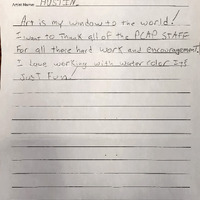 Artist Name: AUSTIN
Art is my window to the world!
I want to thank all of the PCAP STAFF
For all there hard work and encouragement!
I Love working with water color It's
Just Fun!